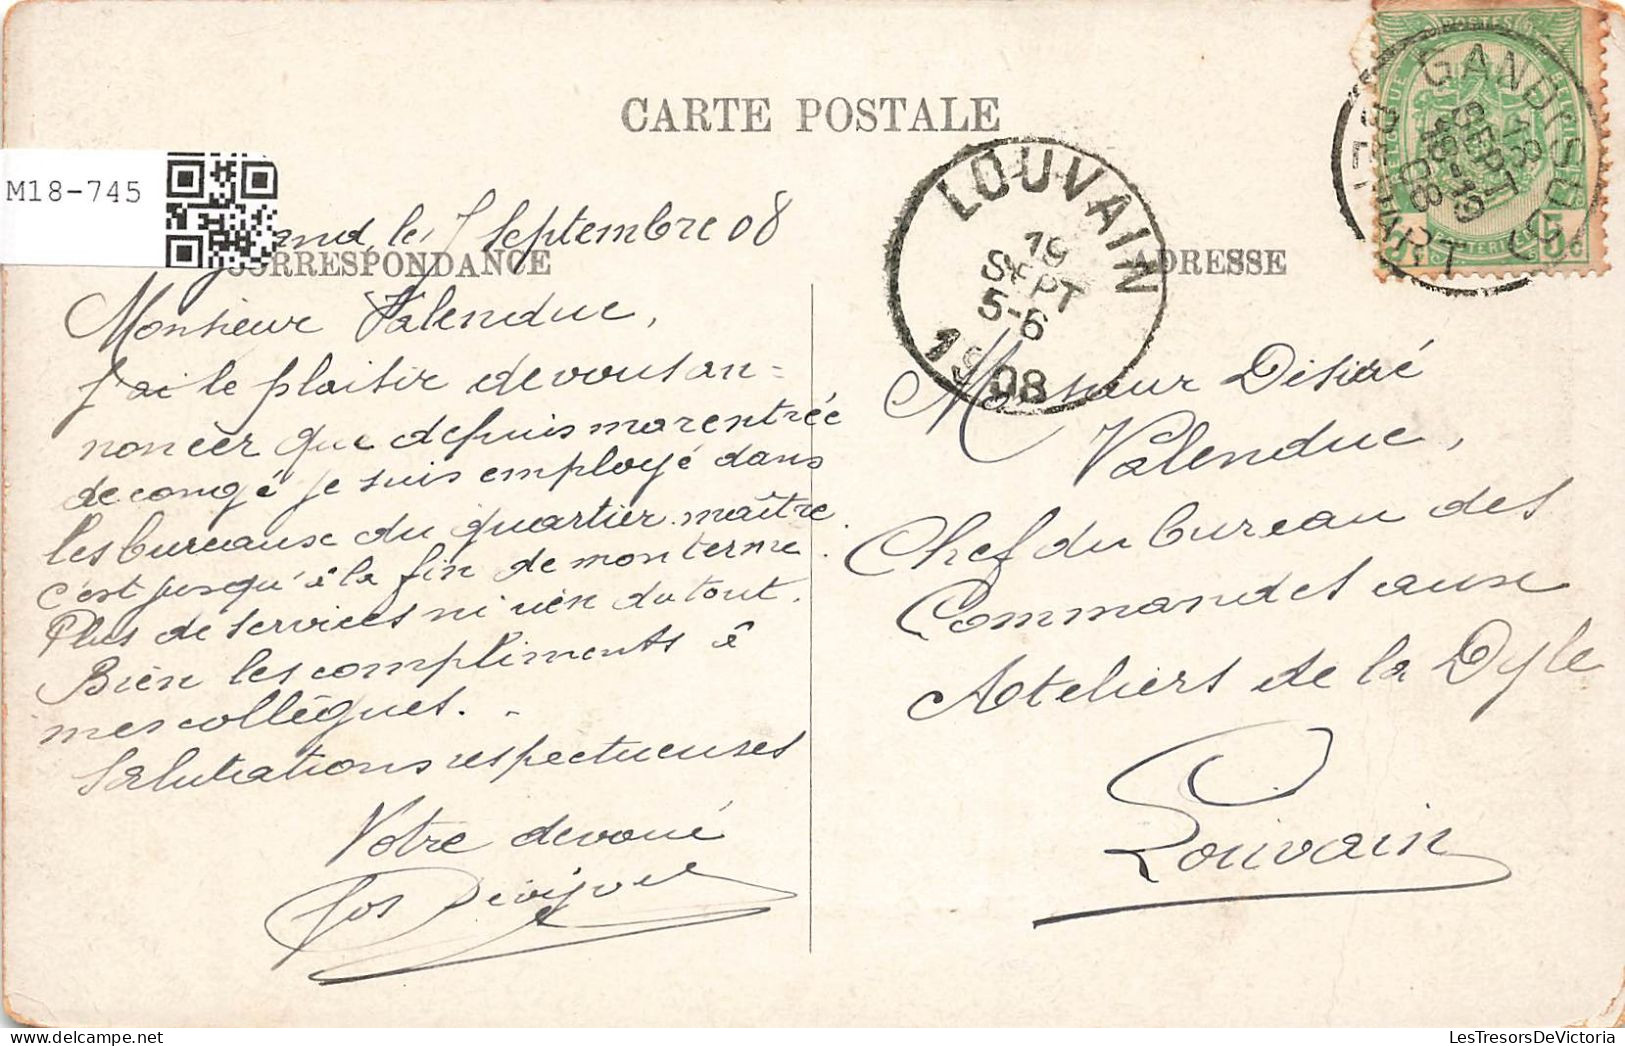 CARTE POSTALE
M18-745
Gand, le, 7 Septembre 08
CORRESPONDANCE
Monsieur Valenduc,
J'ai le plaisir de vous an=
noncer que depuis ma rentrée
de congé je suis employé dans
les bureaux du quartier-maître
c'est jusqu'à la fin de mon terme.
Plus de services ni rien du tout.
Bien les compliments à
mes collègues. -
Salutations respectueuses
Votre dévoué
Jos
LOUVAIN
19
SEPT
5-6
1908
POSTES
GAND (SUD)
18
SEPT
18-19
08
GENT
5c
ADRESSE
Monsieur Désiré
Valenduc,
Chef du bureau des
Commandes aux
Ateliers de la Dyle
Louvain
LesTresorsDeVictoria